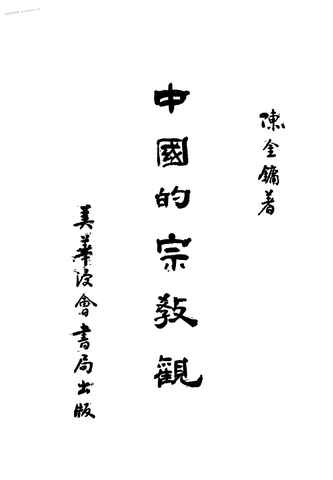 陳金鏞著
中國的宗教觀
美華浸會書局出版